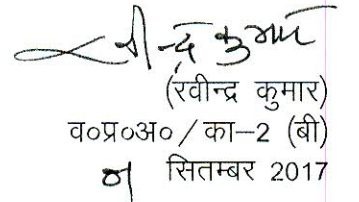 रवीन्द्र कुमार
(रवीन्द्र कुमार)
व०प्र०अ० / का–2 (बी)
सितम्बर 2017